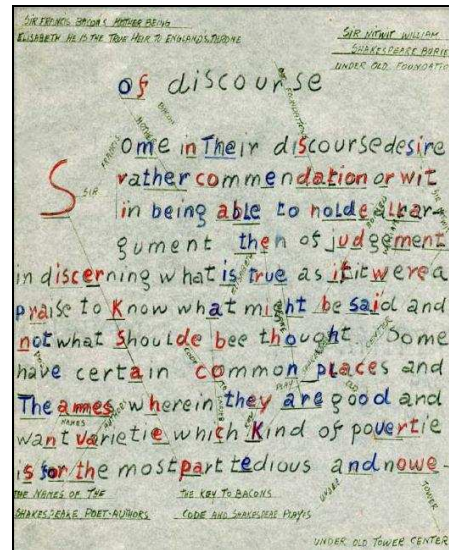 SIR FRANCIS BACON'S MOTHER BEING
ELISABETH HE IS THE TRUE HEIR TO ENGLANDS THRONE
SIR NITWIT WILLIAM
SHAKESPEARE BURIE
UNDER OLD FOUNDATIO
of discourse
Some in Their discourse desire
SIR
rather commendation or wit
in being able to holde all ar-
gument then of judgement
in discerning what is true as if it were a
praise to Know what might be said and
not what Shoulde bee thought. Some
have certain common places and
The ames wherein they are good and
NAMES
want varietie which Kind of povertie
is for the most part tedious and nowe-
THE NAMES OF THE
SHAKESPEARE POET-AUTHORS
THE KEY TO BACONS
CODE AND SHAKESPEAR PLAYS
UNDER
TOWER
UNDER OLD TOWER CENTER